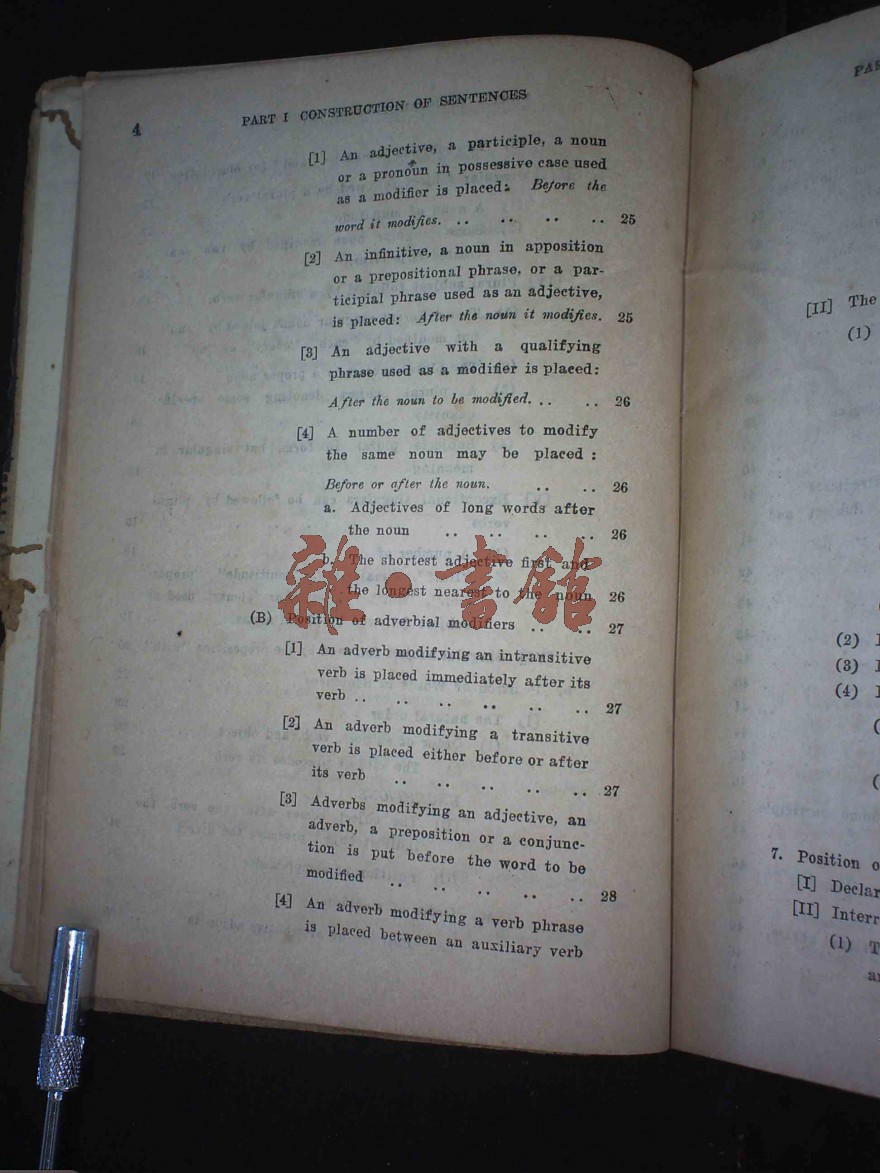 4
PART I CONSTRUCTION OF SENTENCES
[1] An adjective, a participle, a noun
or a pronoun in possessive case used
as a modifier is placed: Before the
word it modifies. .. .. .. .. 25
[2] An infinitive, a noun in apposition
or a prepositional phrase, or a par-
ticipial phrase used as an adjective,
is placed: After the noun it modifies. 25
[3] An adjective with a qualifying
phrase used as a modifier is placed:
After the noun to be modified. .. .. 26
[4] A number of adjectives to modify
the same noun may be placed :
Before or after the noun. .. .. 26
a. Adjectives of long words after
the noun .. .. .. .. 26
b. The shortest adjective first and
the longest nearest to the noun 26
(B) Position of adverbial modifiers .. .. 27
[1] An adverb modifying an intransitive
verb is placed immediately after its
verb .. .. .. .. .. .. 27
[2] An adverb modifying a transitive
verb is placed either before or after
its verb .. .. .. .. .. 27
[3] Adverbs modifying an adjective, an
adverb, a preposition or a conjunc-
tion is put before the word to be
modified .. .. .. .. .. 28
[4] An adverb modifying a verb phrase
is placed between an auxiliary verb
雜·書館
[II] The
(1)
(2)
(3)
(4)
7. Position o
[I] Declar
[II] Interr
(1) T